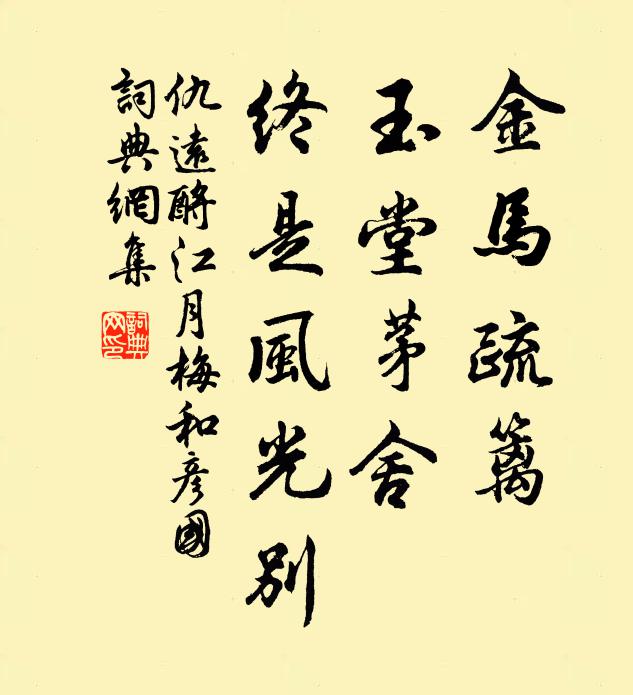 金馬疏籬
玉堂茅舍
終是風光別
仇遠酹江月梅和彥國
詞典網集
詞典網印